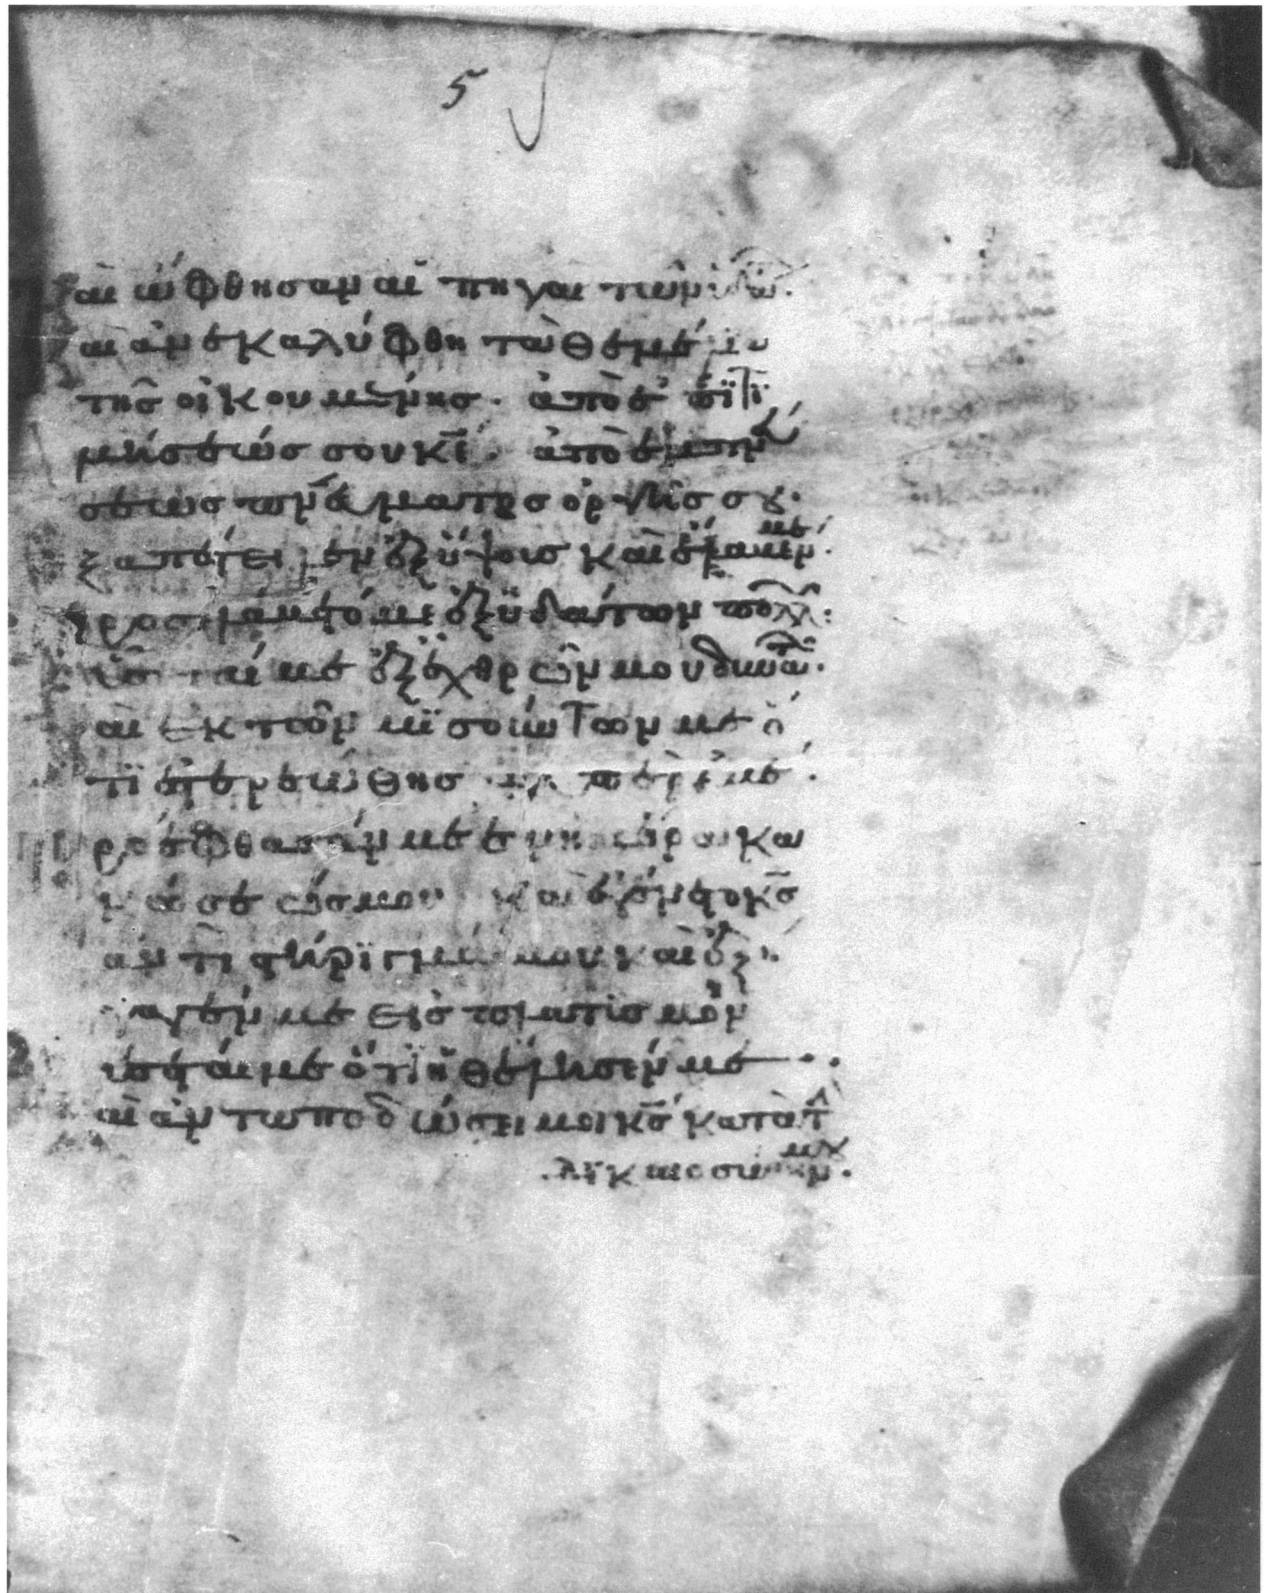 5
αι ὤφθησαν αἱ πηγαι τῶν ὑδά
αι ἀνεκαλύφθη τὰ θεμέλια
τῆς οἰκουμένης. ἀπὸ ἐπιτι
μήσεώς σου κε. ἀπὸ ἐμπνεύ
σεως πνάματος ὀργῆς σου.
ξαπέστει ἐξ ὕψους καὶ ἔλαβέν με.
προσελάβετό με ἐξ ὑδάτων πολλ.
με ἐξ ἐχθρῶν μου δυνατῶ.
αὶ ἐκ τῶν μισούντων με ὅ
τι ἐστερεώθησ ὑπὲρ ἐμέ.
ροέφθασάν με ἐν ἡμέρα κα
κώσεώς μου καὶ ἐγένετο κς
ἀντιστήριγμά μου καὶ ἐξή
αγέν με εἰς πλατισμὸν
ύσεταί με ὅτι ἠθέλησέν με
αὶ ἀνταποδώσει μοι κς κατὰ τ
δικαιοσύνην μου.